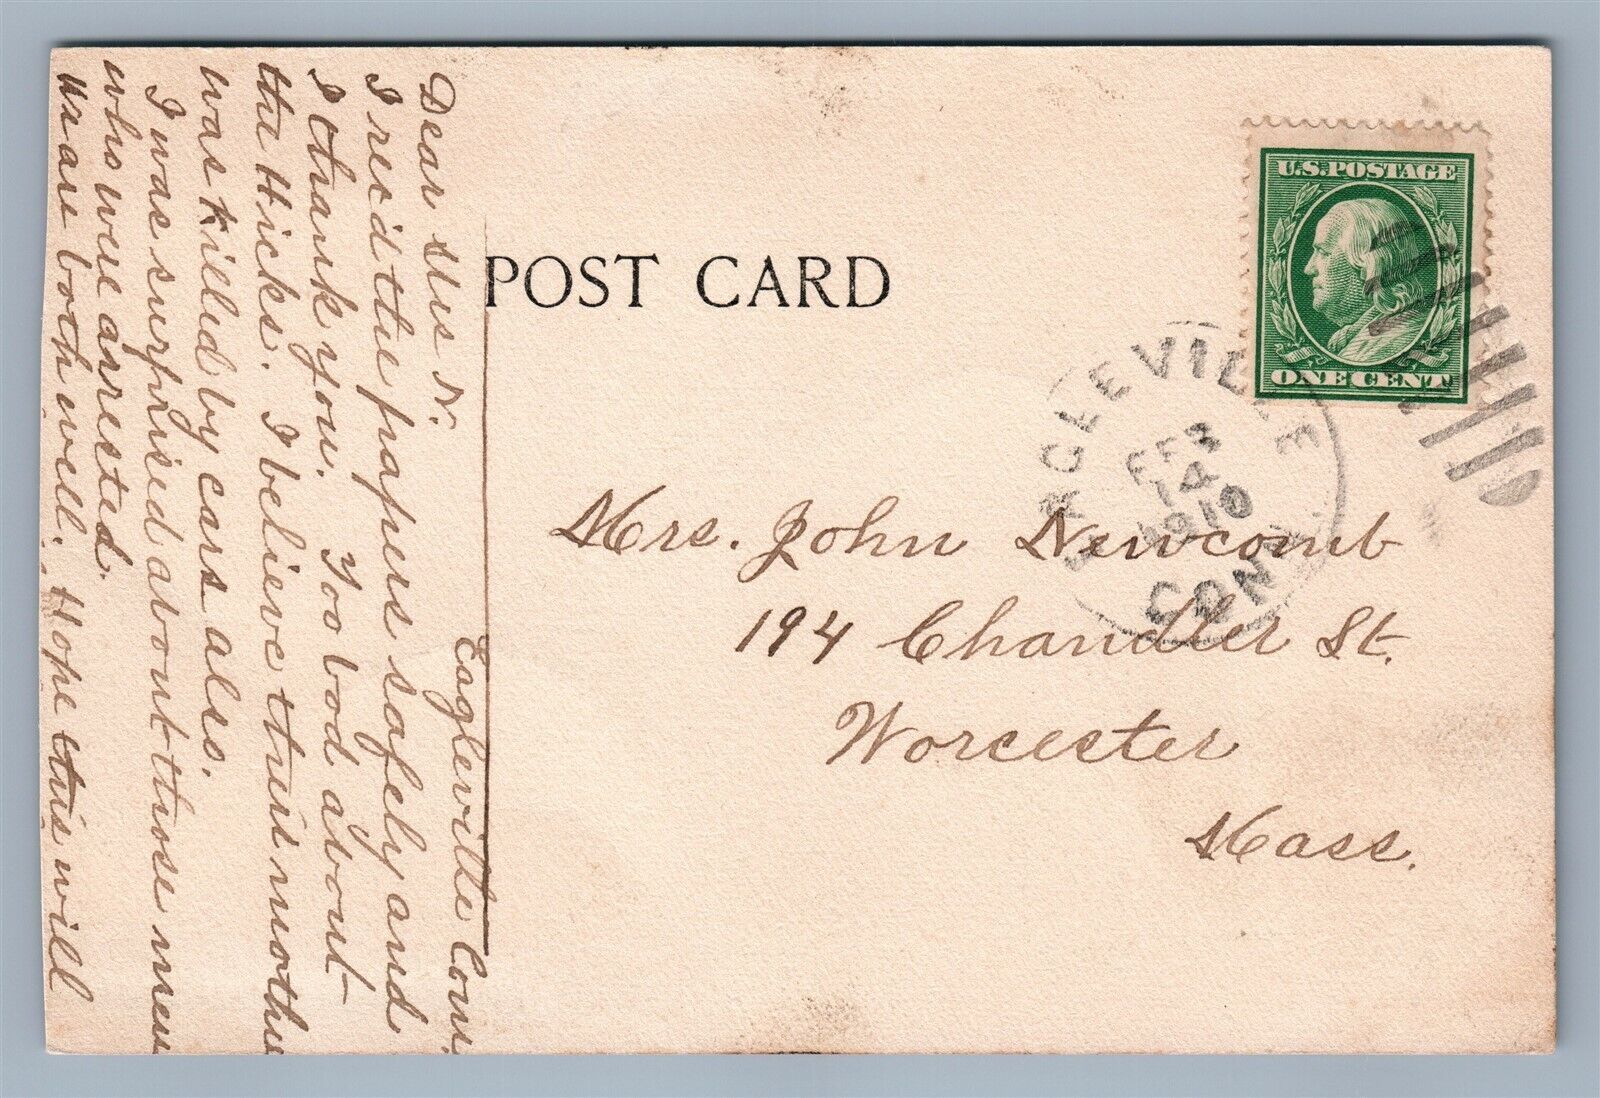 Eagleville Conn
Dear Mrs N.
I rec'd the papers safely and
I thank you. Too bad about
the Hicks. I believe their mother
was killed by cars also.
I was surprised about those men
who were arrested.
We are both well. Hope this will
POST CARD
U.S. POSTAGE
ONE CENT
EAGLEVILLE
FEB
14
1910
CONN.
Mrs. John Newcomb
194 Chandler St.
Worcester
Mass.